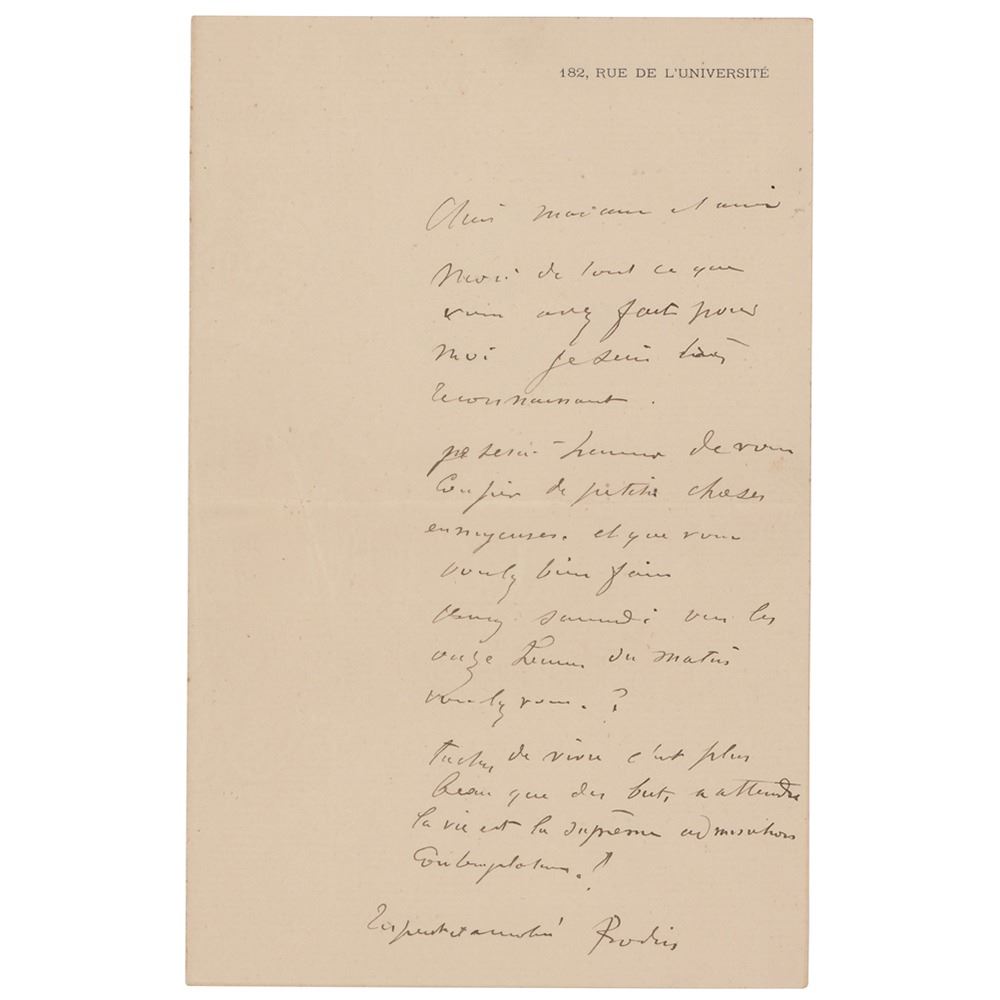 182, RUE DE L'UNIVERSITÉ
Chère madame et amie
Merci de tout ce que
vous avez fait pour
moi je suis très
reconnaissant.
heureux de vous
confier de petites choses
ennuyeuses. et que vous
voulez bien faire
Venez samedi vers les
onze heures du matin
voulez vous. ?
tachez de vivre c'est plus
beau que des buts a attendre
la vie est la suprème admiration
Contemplation. !
Respect et amitié Rodin